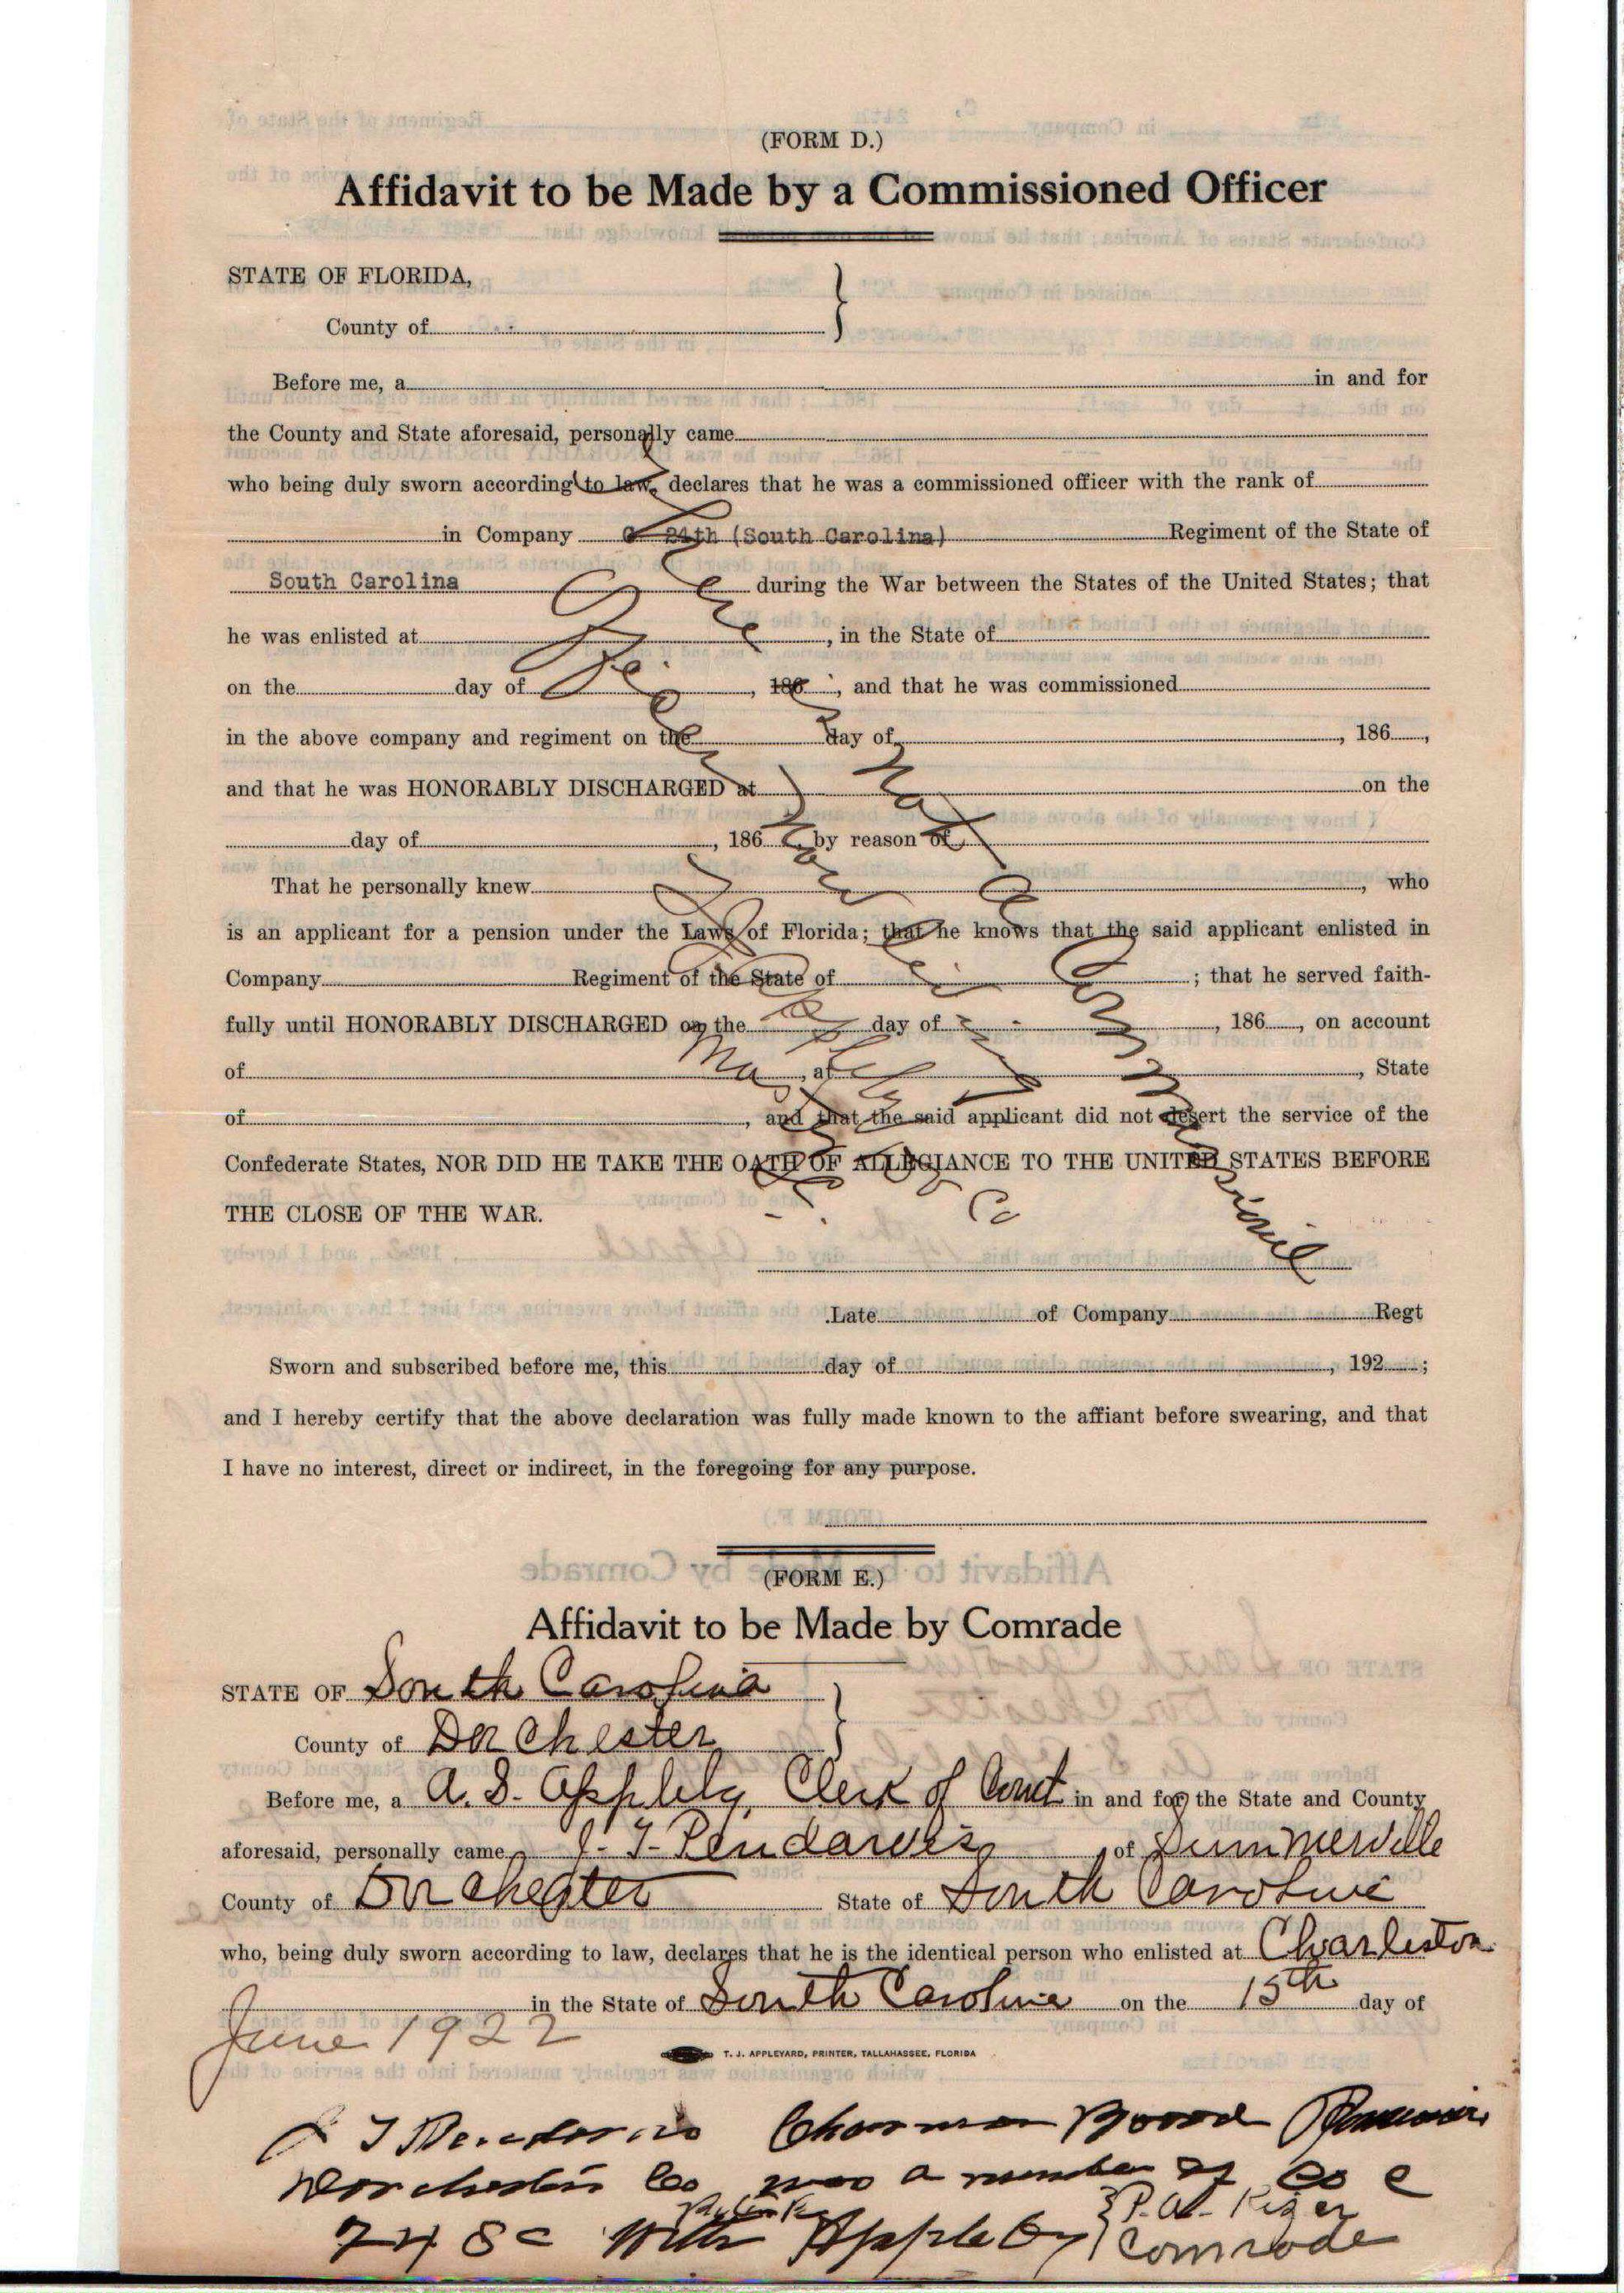 (FORM D.)
Affidavit to be Made by a Commissioned Officer
STATE OF FLORIDA,
County of
Before me, a in and for
the County and State aforesaid, personally came
who being duly sworn according to law, declares that he was a commissioned officer with the rank of
in Company C 24th (South Carolina) Regiment of the State of
South Carolina during the War between the States of the United States; that
he was enlisted at , in the State of
on the day of , 186 , and that he was commissioned
in the above company and regiment on the day of , 186 ,
and that he was HONORABLY DISCHARGED at on the
day of , 186 by reason of
That he personally knew , who
is an applicant for a pension under the Laws of Florida; that he knows that the said applicant enlisted in
Company Regiment of the State of ; that he served faith-
fully until HONORABLY DISCHARGED on the day of , 186 , on account
of , at , State
of , and that the said applicant did not desert the service of the
Confederate States, NOR DID HE TAKE THE OATH OF ALLEGIANCE TO THE UNITED STATES BEFORE
THE CLOSE OF THE WAR.
not a Commissioned
Officer
Appleby
Co
Late of Company Regt
Sworn and subscribed before me, this day of , 192 ;
and I hereby certify that the above declaration was fully made known to the affiant before swearing, and that
I have no interest, direct or indirect, in the foregoing for any purpose.
(FORM E.)
Affidavit to be Made by Comrade
STATE OF South Carolina
County of Dorchester
Before me, a A. S. Appleby, Clerk of Court in and for the State and County
aforesaid, personally came J. T. Pendarvis , of Summerville
County of Dorchester State of South Carolina
who, being duly sworn according to law, declares that he is the identical person who enlisted at Charleston
in the State of South Carolina on the 15th day of
June 1922
T. J. APPLEYARD, PRINTER, TALLAHASSEE, FLORIDA
J T Pendarvis Chairman Board Pension
Dorchester Co was a member of Co C
24 S C with Appleby
Comrade